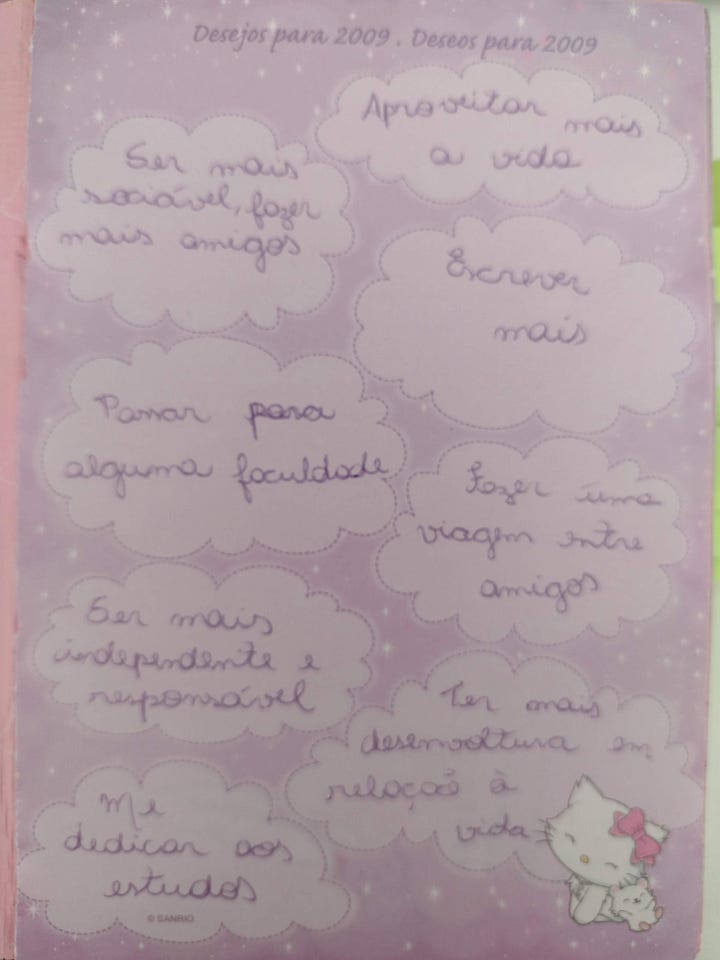 Desejos para 2009 . Deseos para 2009
Aproveitar mais
a vida
Ser mais
sociável, fazer
mais amigos
Escrever
mais
Passar para
alguma faculdade
Fazer uma
viagem entre
amigos
Ser mais
independente e
responsável
Ter mais
desenvoltura em
relação à
vida
Me
dedicar aos
estudos
© SANRIO